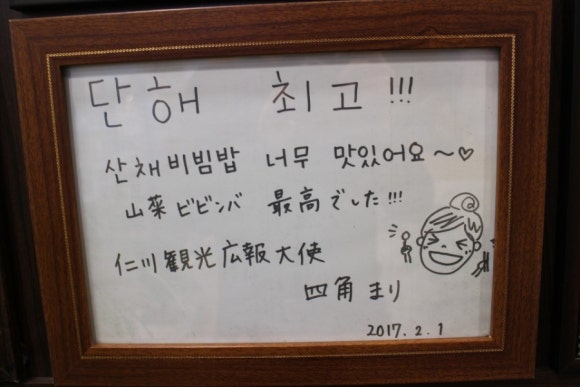 단해 최고!!!
산채비빔밥 너무 맛있어요~♡
山菜ビビンバ 最高でした!!!
仁川観光広報大使
四角まり
2017.2.1